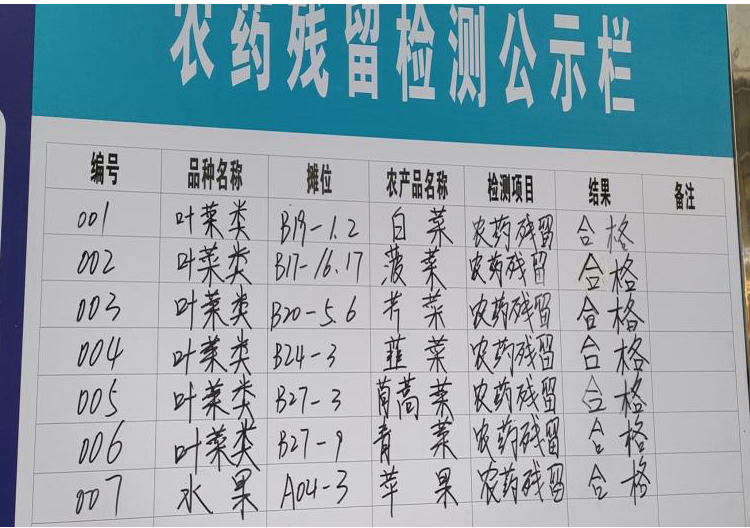 农药残留检测公示栏
编号 品种名称 摊位 农产品名称 检测项目 结果 备注
001 叶菜类 B19-1.2 白菜 农药残留 合格
002 叶菜类 B17-16.17 菠菜 农药残留 合格
003 叶菜类 B20-5.6 芹菜 农药残留 合格
004 叶菜类 B24-3 韭菜 农药残留 合格
005 叶菜类 B27-3 茼蒿菜 农药残留 合格
006 叶菜类 B27-9 青菜 农药残留 合格
007 水果 A04-3 苹果 农药残留 合格